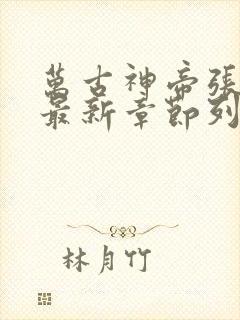 萬古神帝張
最新章節列
林月竹